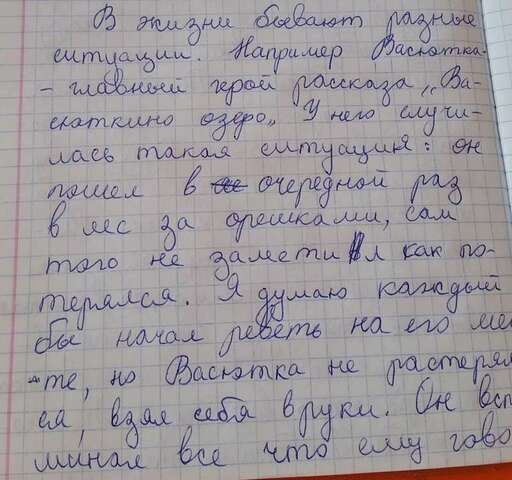 В жизни бывают разные
ситуации. Например Васютка-
- главный герой рассказа „Ва-
сюткино озеро„ У него случи-
лась такая ситуация: он
пошел в очередной раз
в лес за орешками, сам
того не заметил как по-
терялся. Я думаю каждый
бы начал реветь на его ме
-те, но Васютка не растерял
ся, взял себя в руки. Он всп
минал все что ему гово